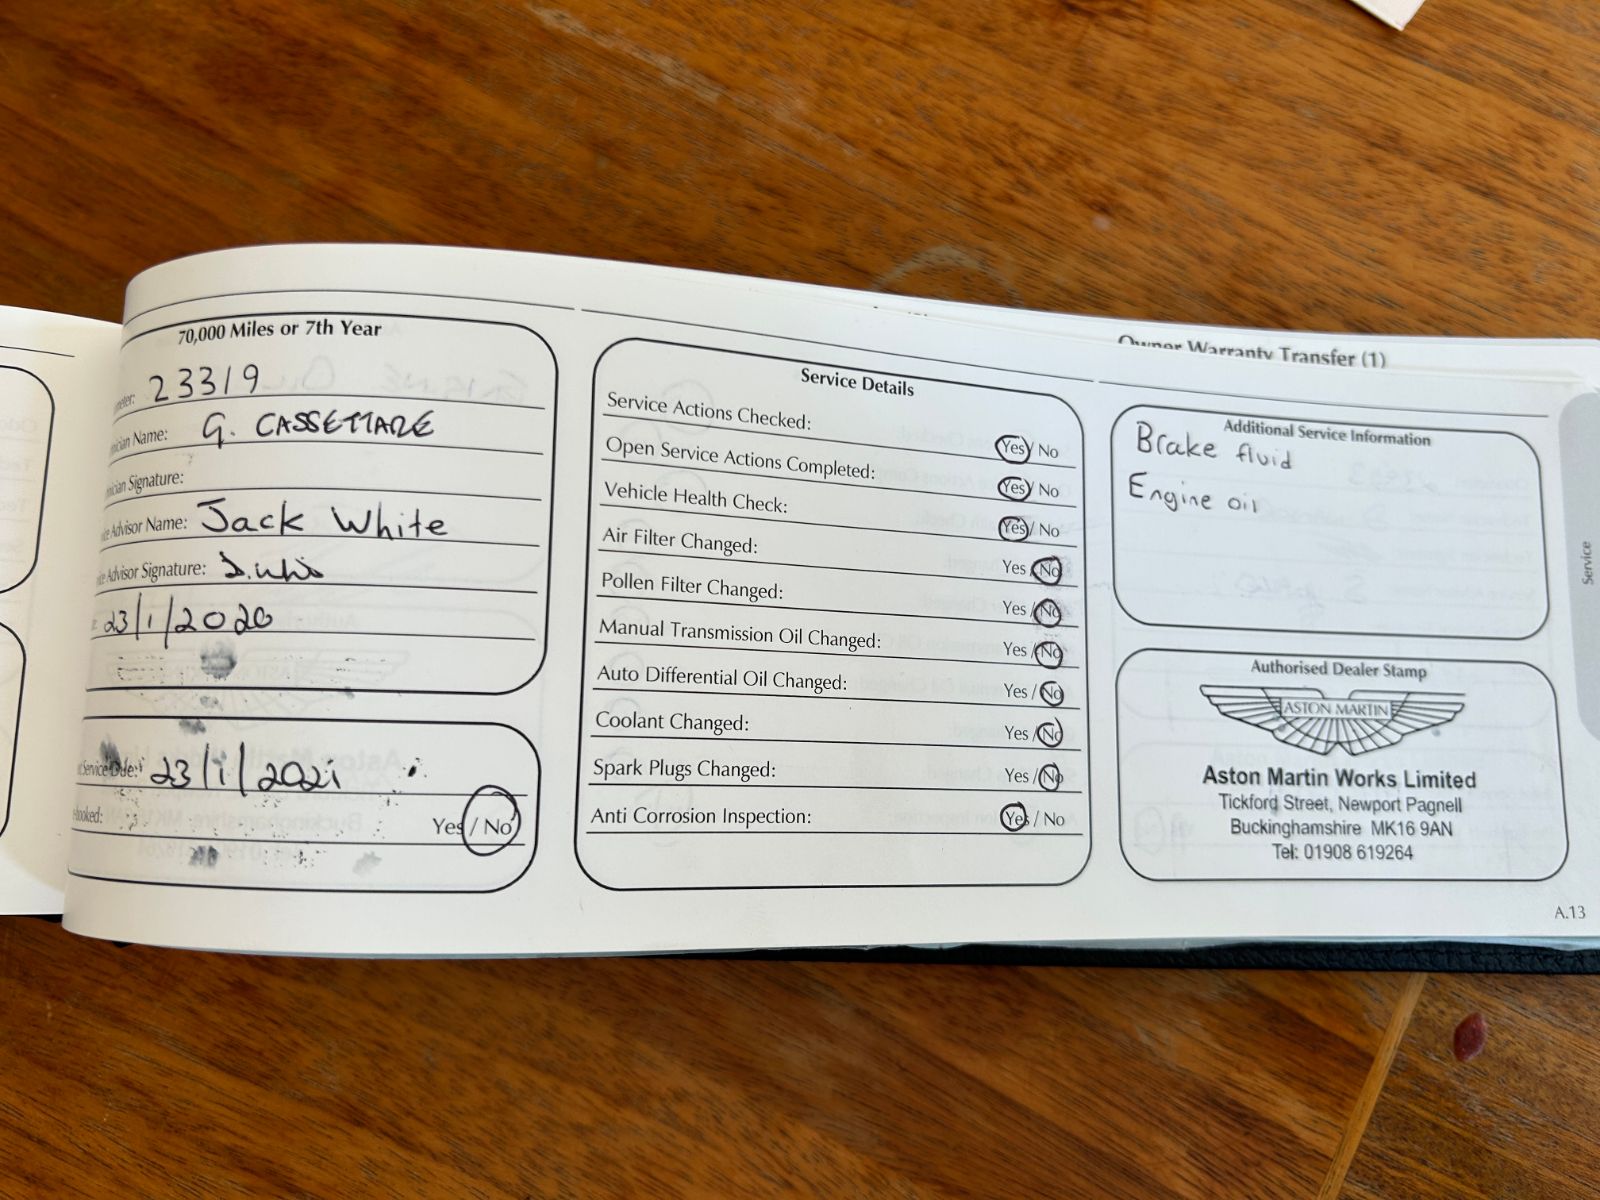 70,000 Miles or 7th Year
meter: 23319
ician Name: G. CASSETTARE
nician Signature:
ce Advisor Name: Jack White
ce Advisor Signature:
23/1/2020
t Service Due: 23/1/2021
-booked: Yes / No
Service Details
Service Actions Checked: Yes / No
Open Service Actions Completed: Yes / No
Vehicle Health Check: Yes / No
Air Filter Changed: Yes / No
Pollen Filter Changed: Yes / No
Manual Transmission Oil Changed: Yes / No
Auto Differential Oil Changed: Yes / No
Coolant Changed: Yes / No
Spark Plugs Changed: Yes / No
Anti Corrosion Inspection: Yes / No
Owner Warranty Transfer (1)
Additional Service Information
Brake fluid
Engine oil
Authorised Dealer Stamp
ASTON MARTIN
Aston Martin Works Limited
Tickford Street, Newport Pagnell
Buckinghamshire MK16 9AN
Tel: 01908 619264
Service
A.13